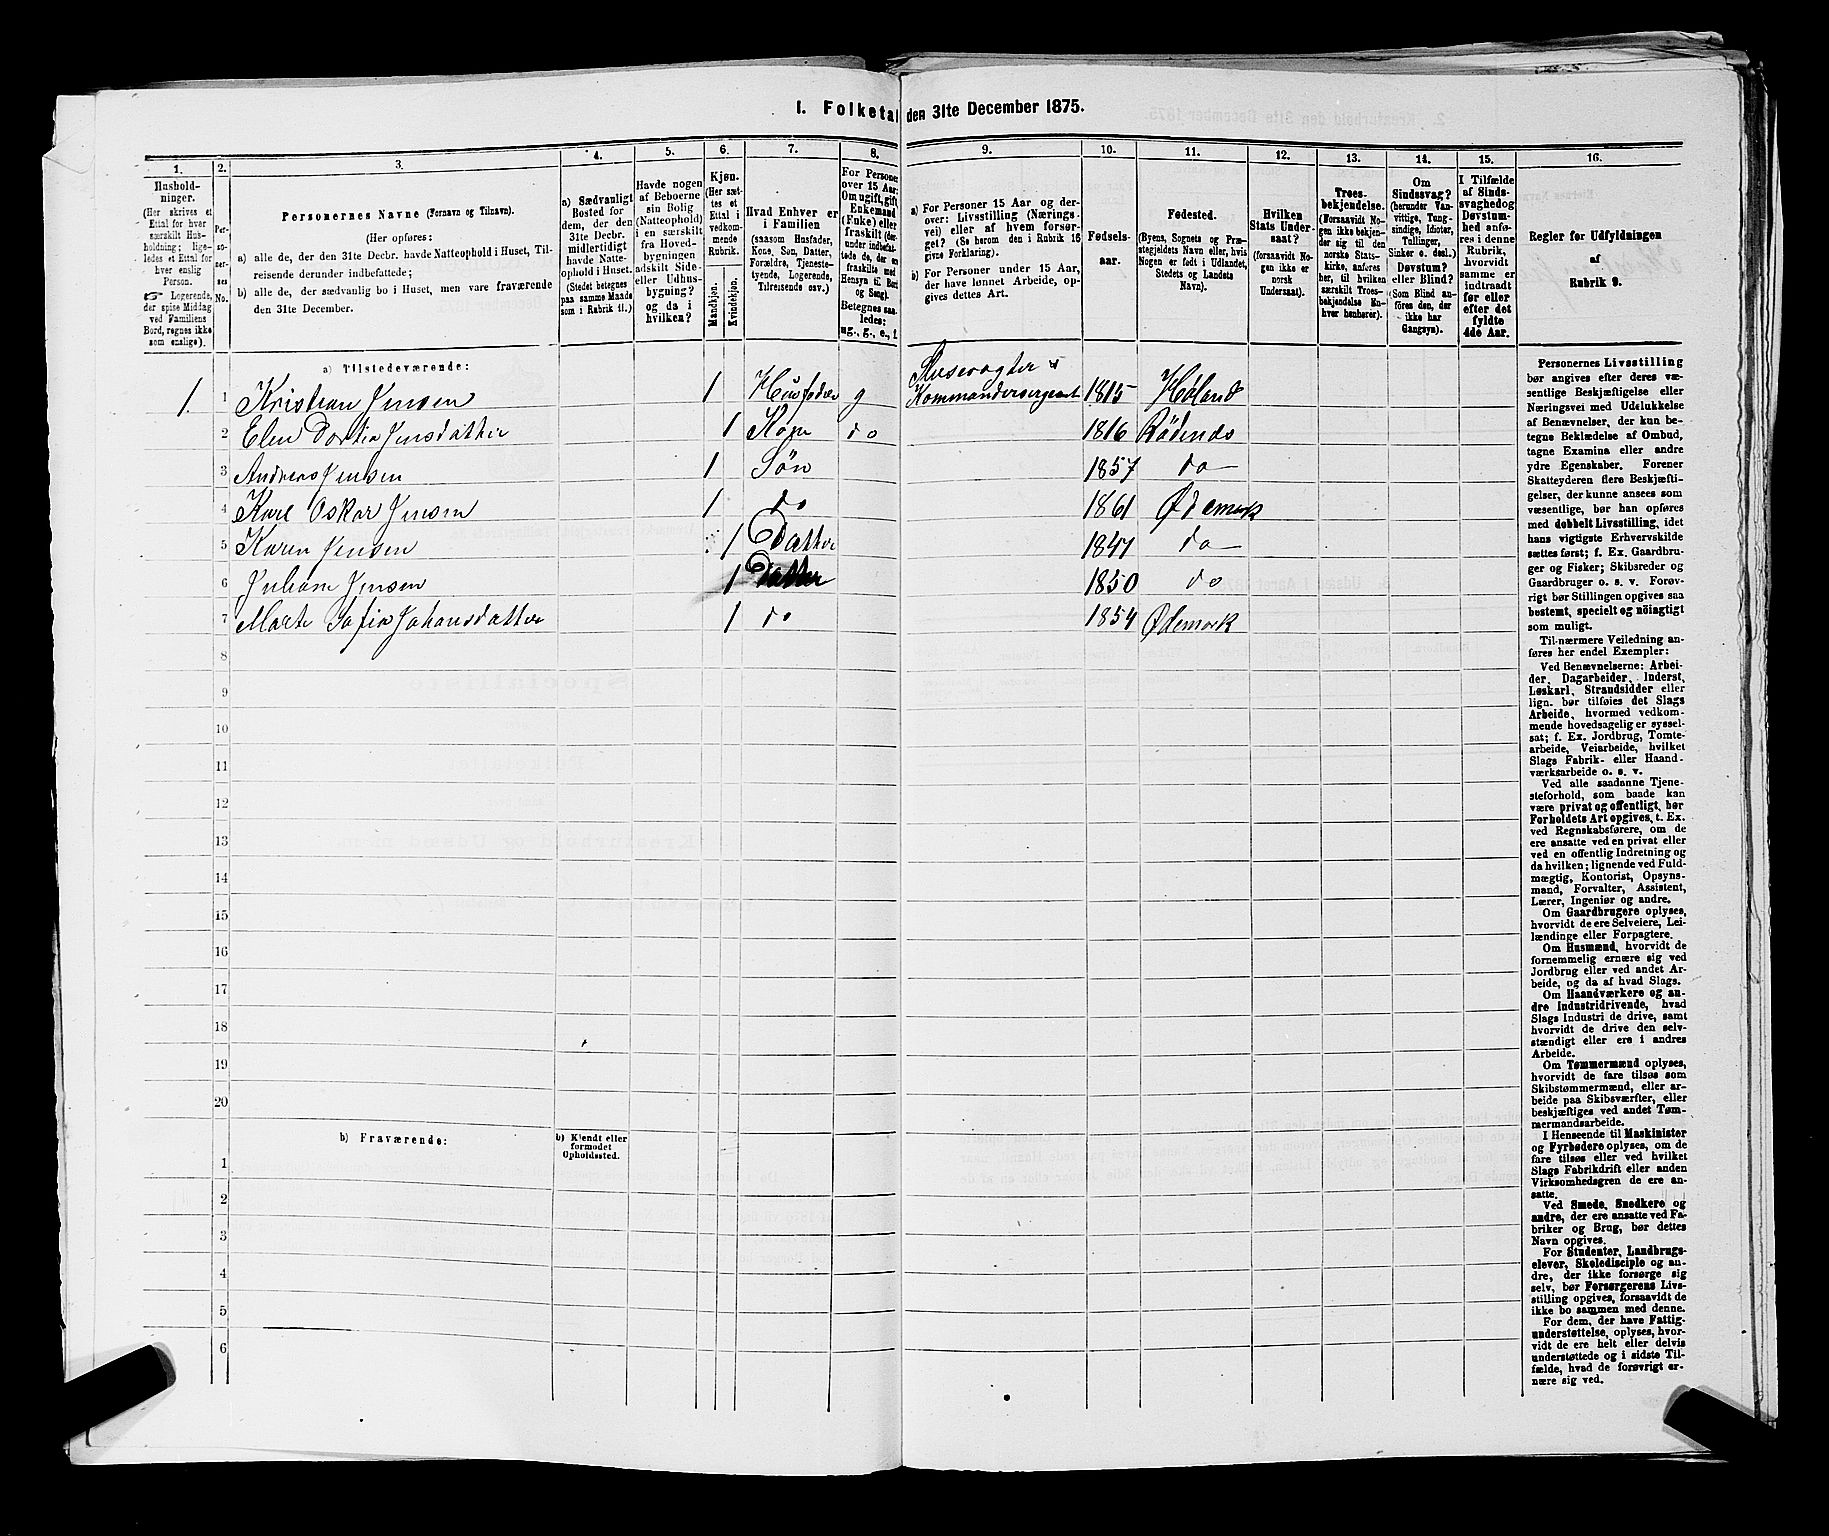 I. Folketal den 31te December 1875.
1.
2.
3.
4.
5.
6.
7.
8.
9.
10.
11.
12.
13.
14.
15.
16.
Hushold-
ninger.
(Her skrives et
Ettal for hver
særskilt Hus-
holdning; lige-
ledes et Ettal for
hver enslig
Person.
☞ Logerende,
der spise Middag
ved Familiens
Bord, regnes ikke
som enslige).
Per-
so-
ner-
nes
No.
Personernes Navne (Fornavn og Tilnavn).
(Her opføres:
a) alle de, der den 31te Decbr. havde Natteophold i Huset, Til-
reisende derunder indbefattede;
b) alle de, der sædvanlig bo i Huset, men vare fraværende
den 31te December.
a) Sædvanligt
Bosted for
dem, der den
31te Decbr.
midlertidigt
havde Natte-
ophold i Huset.
(Stedet betegnes
paa samme Maade
som i Rubrik 11.)
Havde nogen
af Beboerne
sin Bolig
(Natteophold)
i en særskilt
fra Hoved-
bygningen
adskilt Side-
eller Udhus-
bygning?
og da i
hvilken?
Kjøn.
(Her sæt-
tes et
Ettal i
vedkom-
mende
Rubrik.
Mandkjøn.
Kvindekjøn.
Hvad Enhver er
i Familien
(saasom Husfader,
Kone, Søn, Datter,
Forældre, Tjeneste-
tyende, Logerende,
Tilreisende osv.)
For Persone
over 15 Aar:
Om ugift, gift
Enkemand
(Enke) eller
fraskilt
a) For Personer 15 Aar og der-
over: Livsstilling (Nærings-
vei) eller af hvem forsør-
get? (Se herom den i Rubrik 16
givne Forklaring).
b) For Personer under 15 Aar,
der have lønnet Arbeide, op-
gives dettes Art.
Fødsels-
aar.
Fødested.
(Byens, Sognets og Præ-
stegjeldets Navn eller, hvis
Nogen er født i Udlandet,
Stedets og Landets
Navn).
Hvilken
Stats Under-
saat?
(forsaavidt No-
gen ikke er
norsk
Undersaat).
Troes-
bekjendelse.
(Forsaavidt No-
gen ikke bekjen-
der sig til den
norske Stats-
kirke, anføres
her, til hvilken
særskilt Troes-
bekjendelse En-
hver henhører).
Om
Sindssvag?
(herunder Van-
vittige, Tung-
sindige, Idioter,
Tullinger,
Sinker o. desl.).
Døvstum?
eller Blind?
(Som Blind an-
føres den, der
ikke har
Gangsyn).
I Tilfælde
af Sinds-
svaghed og
Døvstum-
hed anfø-
res i denne
Rubrik,
hvorvidt
samme er
indtraadt
før eller
efter det
fyldte
4de Aar.
Regler for Udfyldningen
af
Rubrik 9.
a) Tilstedeværende:
1. 1 Kristian Jensen 1 Husfader g Slusevogter & Kommandersergeant 1815 Høland
2 Elen Dortia Jensdatter 1 Kone do 1816 Rødenæs
3 Andreas Jensen 1 Søn 1857 do
4 Karl Oskar Jensen 1 do 1861 Ødemark
5 Karen Jensen 1 Datter 1847 do
6 Juliane Jensen 1 Datter 1850 do
7 Marte Sofia Johansdatter 1 do 1854 Ødemark
8
9
10
11
12
13
14
15
16
17
18
19
20
b) Fraværende:
b) Kjendt eller
formodet
Opholdssted.
1
2
3
4
5
6
Personernes Livsstilling
bør angives efter deres væ-
sentlige Beskjæftigelse eller
Næringsvei med Udelukkelse
af Benævnelser, der kun be-
tegne Beklædelse af Ombud,
tagne Examina eller andre
ydre Egenskaber. Forener
Skatteyderen flere Beskjæfti-
gelser, der kunne ansees som
væsentlige, bør han opføres
med dobbelt Livsstilling, idet
hans vigtigste Erhvervskilde
sættes først; f. Ex. Gaardbru-
ger og Fisker; Skibsreder og
Gaardbruger o. s. v. Forøv-
rigt bør Stillingen opgives saa
bestemt, specielt og nøiagtigt
som muligt.
Til nærmere Veiledning an-
føres her endel Exempler:
Ved Benævnelserne: Arbei-
der, Dagarbeider, Inderst,
Løskarl, Strandsidder eller
lign. bør tilføies det Slags
Arbeide, hvormed vedkom-
mende hovedsagelig er syssel-
sat; f. Ex. Jordbrug, Tomte-
arbeide, Veiarbeide, hvilket
Slags Fabrik- eller Haand-
værksarbeide o. s. v.
Ved alle saadanne Tjene-
steforhold, som baade kan
være privat og offentligt, bør
Forholdets Art opgives, t. Ex.
ved Regnskabsførere, om de
ere ansatte ved en privat eller
ved en offentlig Indretning og
da hvilken; lignende ved Fuld-
mægtig, Kontorist, Opsyns-
mand, Forvalter, Assistent,
Lærer, Ingeniør og andre.
Om Gaardbrugere oplyses,
hvorvidt de ere Selveiere, Lei-
lændinge eller Forpagtere.
Om Husmænd, hvorvidt de
fornemmelig ernære sig ved
Jordbrug eller ved andet Ar-
beide, og da af hvad Slags.
Om Haandværkere og an-
dre Industridrivende, hvad
Slags Industri de drive, samt
hvorvidt de drive den selv-
stændigt eller ere i andres
Arbeide.
Om Tømmermænd oplyses,
hvorvidt de fare tilsøs som
Skibstømmermænd, eller ar-
beide paa Skibsværfter, eller
beskjæftiges ved andet Tøm-
mermandsarbeide.
I Henseende til Maskinister
og Fyrbødere oplyses, om de
fare tilsøs eller ved hvilket
Slags Fabrikdrift eller anden
Virksomhedsgren de ere an-
satte.
Ved Smede, Snedkere og
andre, der ere ansatte ved Fa-
briker og Brug, bør dettes
Navn opgives.
For Studenter, Landbrugs-
elever, Skoledisciple og an-
dre, der ikke forsørge sig
selv, bør Forsørgerens Livs-
stilling opgives, forsaavidt de
ikke bo sammen med denne.
For dem, der have Fattig-
understøttelse, oplyses, hvor-
vidt de ere helt eller delvis
understøttede og i sidste Til-
fælde, hvad de forøvrigt er-
nære sig ved.